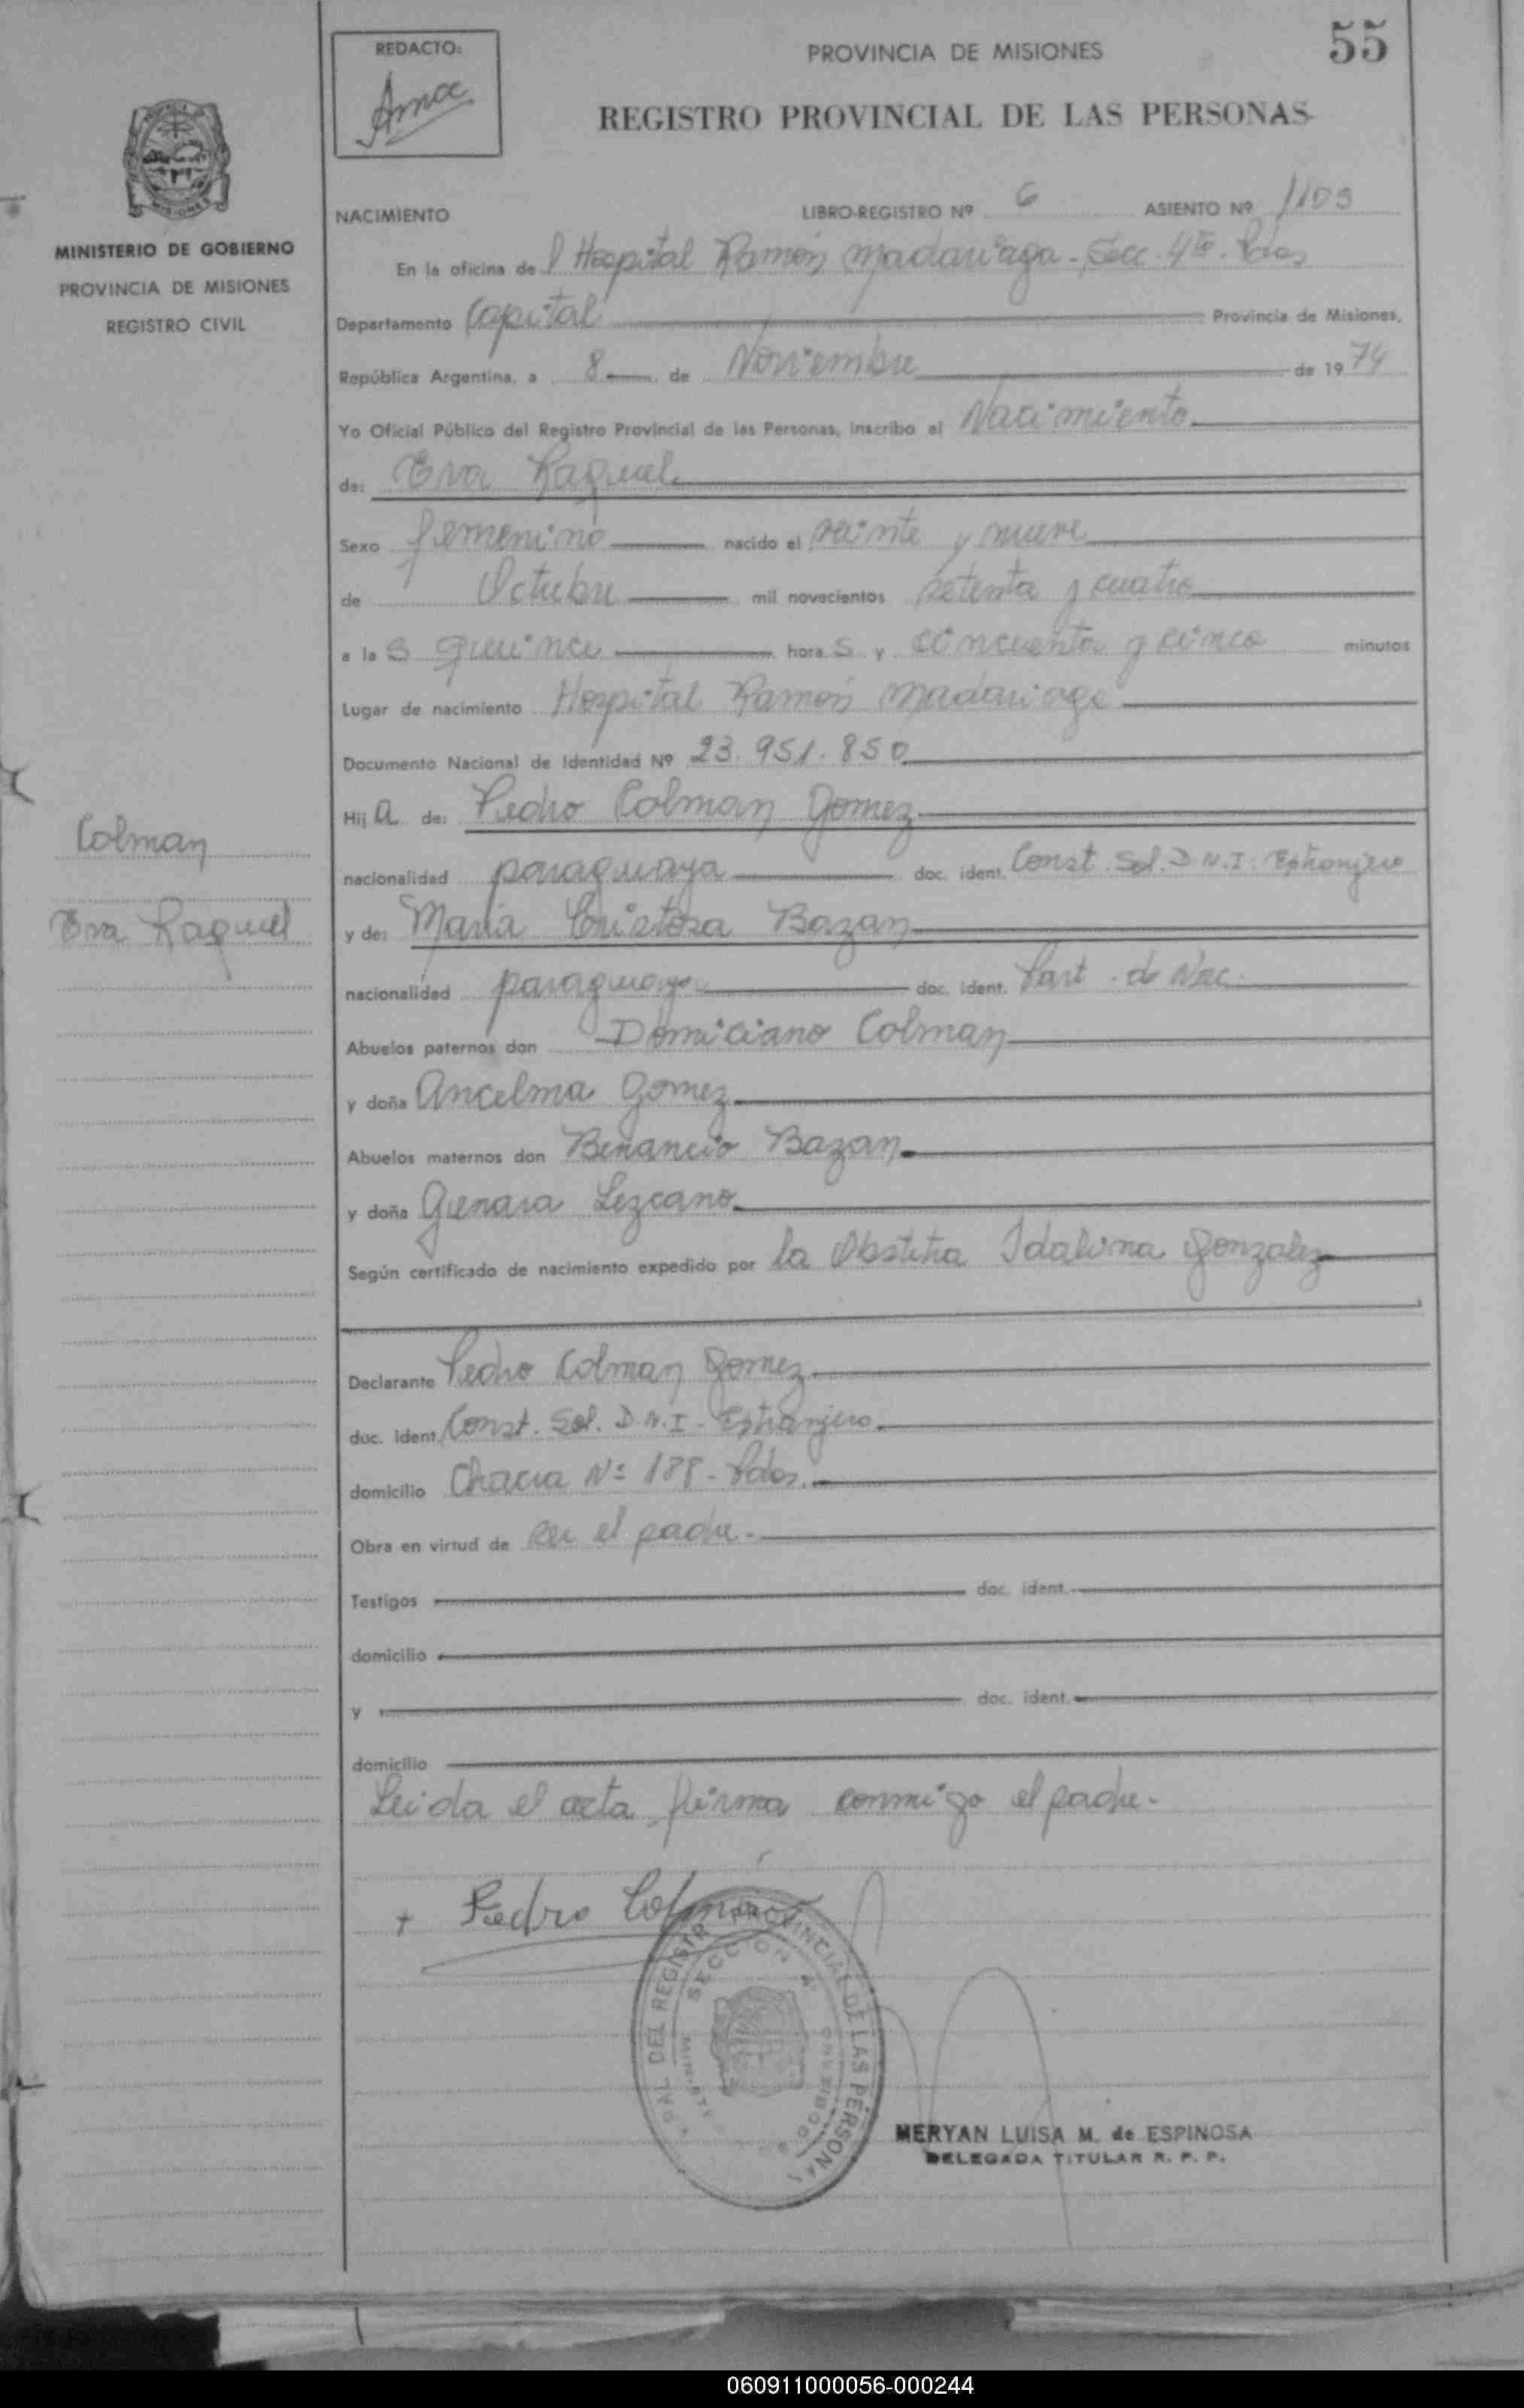 55
REDACTO:
PROVINCIA DE MISIONES
REGISTRO PROVINCIAL DE LAS PERSONAS
MISIONES
MINISTERIO DE GOBIERNO
PROVINCIA DE MISIONES
REGISTRO CIVIL
NACIMIENTO LIBRO-REGISTRO Nº 6 ASIENTO Nº 1109
En la oficina del Hospital Ramón Madariaga - Secc. 4ta. Pdas
Departamento Capital Provincia de Misiones,
República Argentina, a 8 de Noviembre de 1974
Yo Oficial Público del Registro Provincial de las Personas, inscribo el Nacimiento
de: Eva Raquel
Sexo femenino nacido el veinte y nueve
de Octubre mil novecientos setenta y cuatro
a las quince horas y cincuenta y cinco minutos
Lugar de nacimiento Hospital Ramón Madariaga
Documento Nacional de Identidad Nº 23.951.850
Hija de: Pedro Colman Gomez
nacionalidad paraguaya doc. ident. Const. Sol. D.N.I. Extranjero
y de: Maria Bazan
nacionalidad paraguaya doc. ident. Part. de Nac.
Abuelos paternos don Domiciano Colman
y doña Ancelma Gomez
Abuelos maternos don Benancio Bazan
y doña Genara Lezcano
Según certificado de nacimiento expedido por la Obstetra Idalina Gonzalez
Declarante Pedro Colman Gomez
duc. ident. Const. Sol. D.N.I. - Extranjero
domicilio Chacra Nº 188 - Pdas.
Obra en virtud de ser el padre.
Testigos doc. ident.
domicilio
y doc. ident.
domicilio
Leida el acta firma conmigo el padre.
Colman
Eva Raquel
+ Pedro Colman
REGISTRO PROVINCIAL DE LAS PERSONAS
SECCION 4ª
MERYAN LUISA M. de ESPINOSA
DELEGADA TITULAR R. P. P.
060911000056-000244